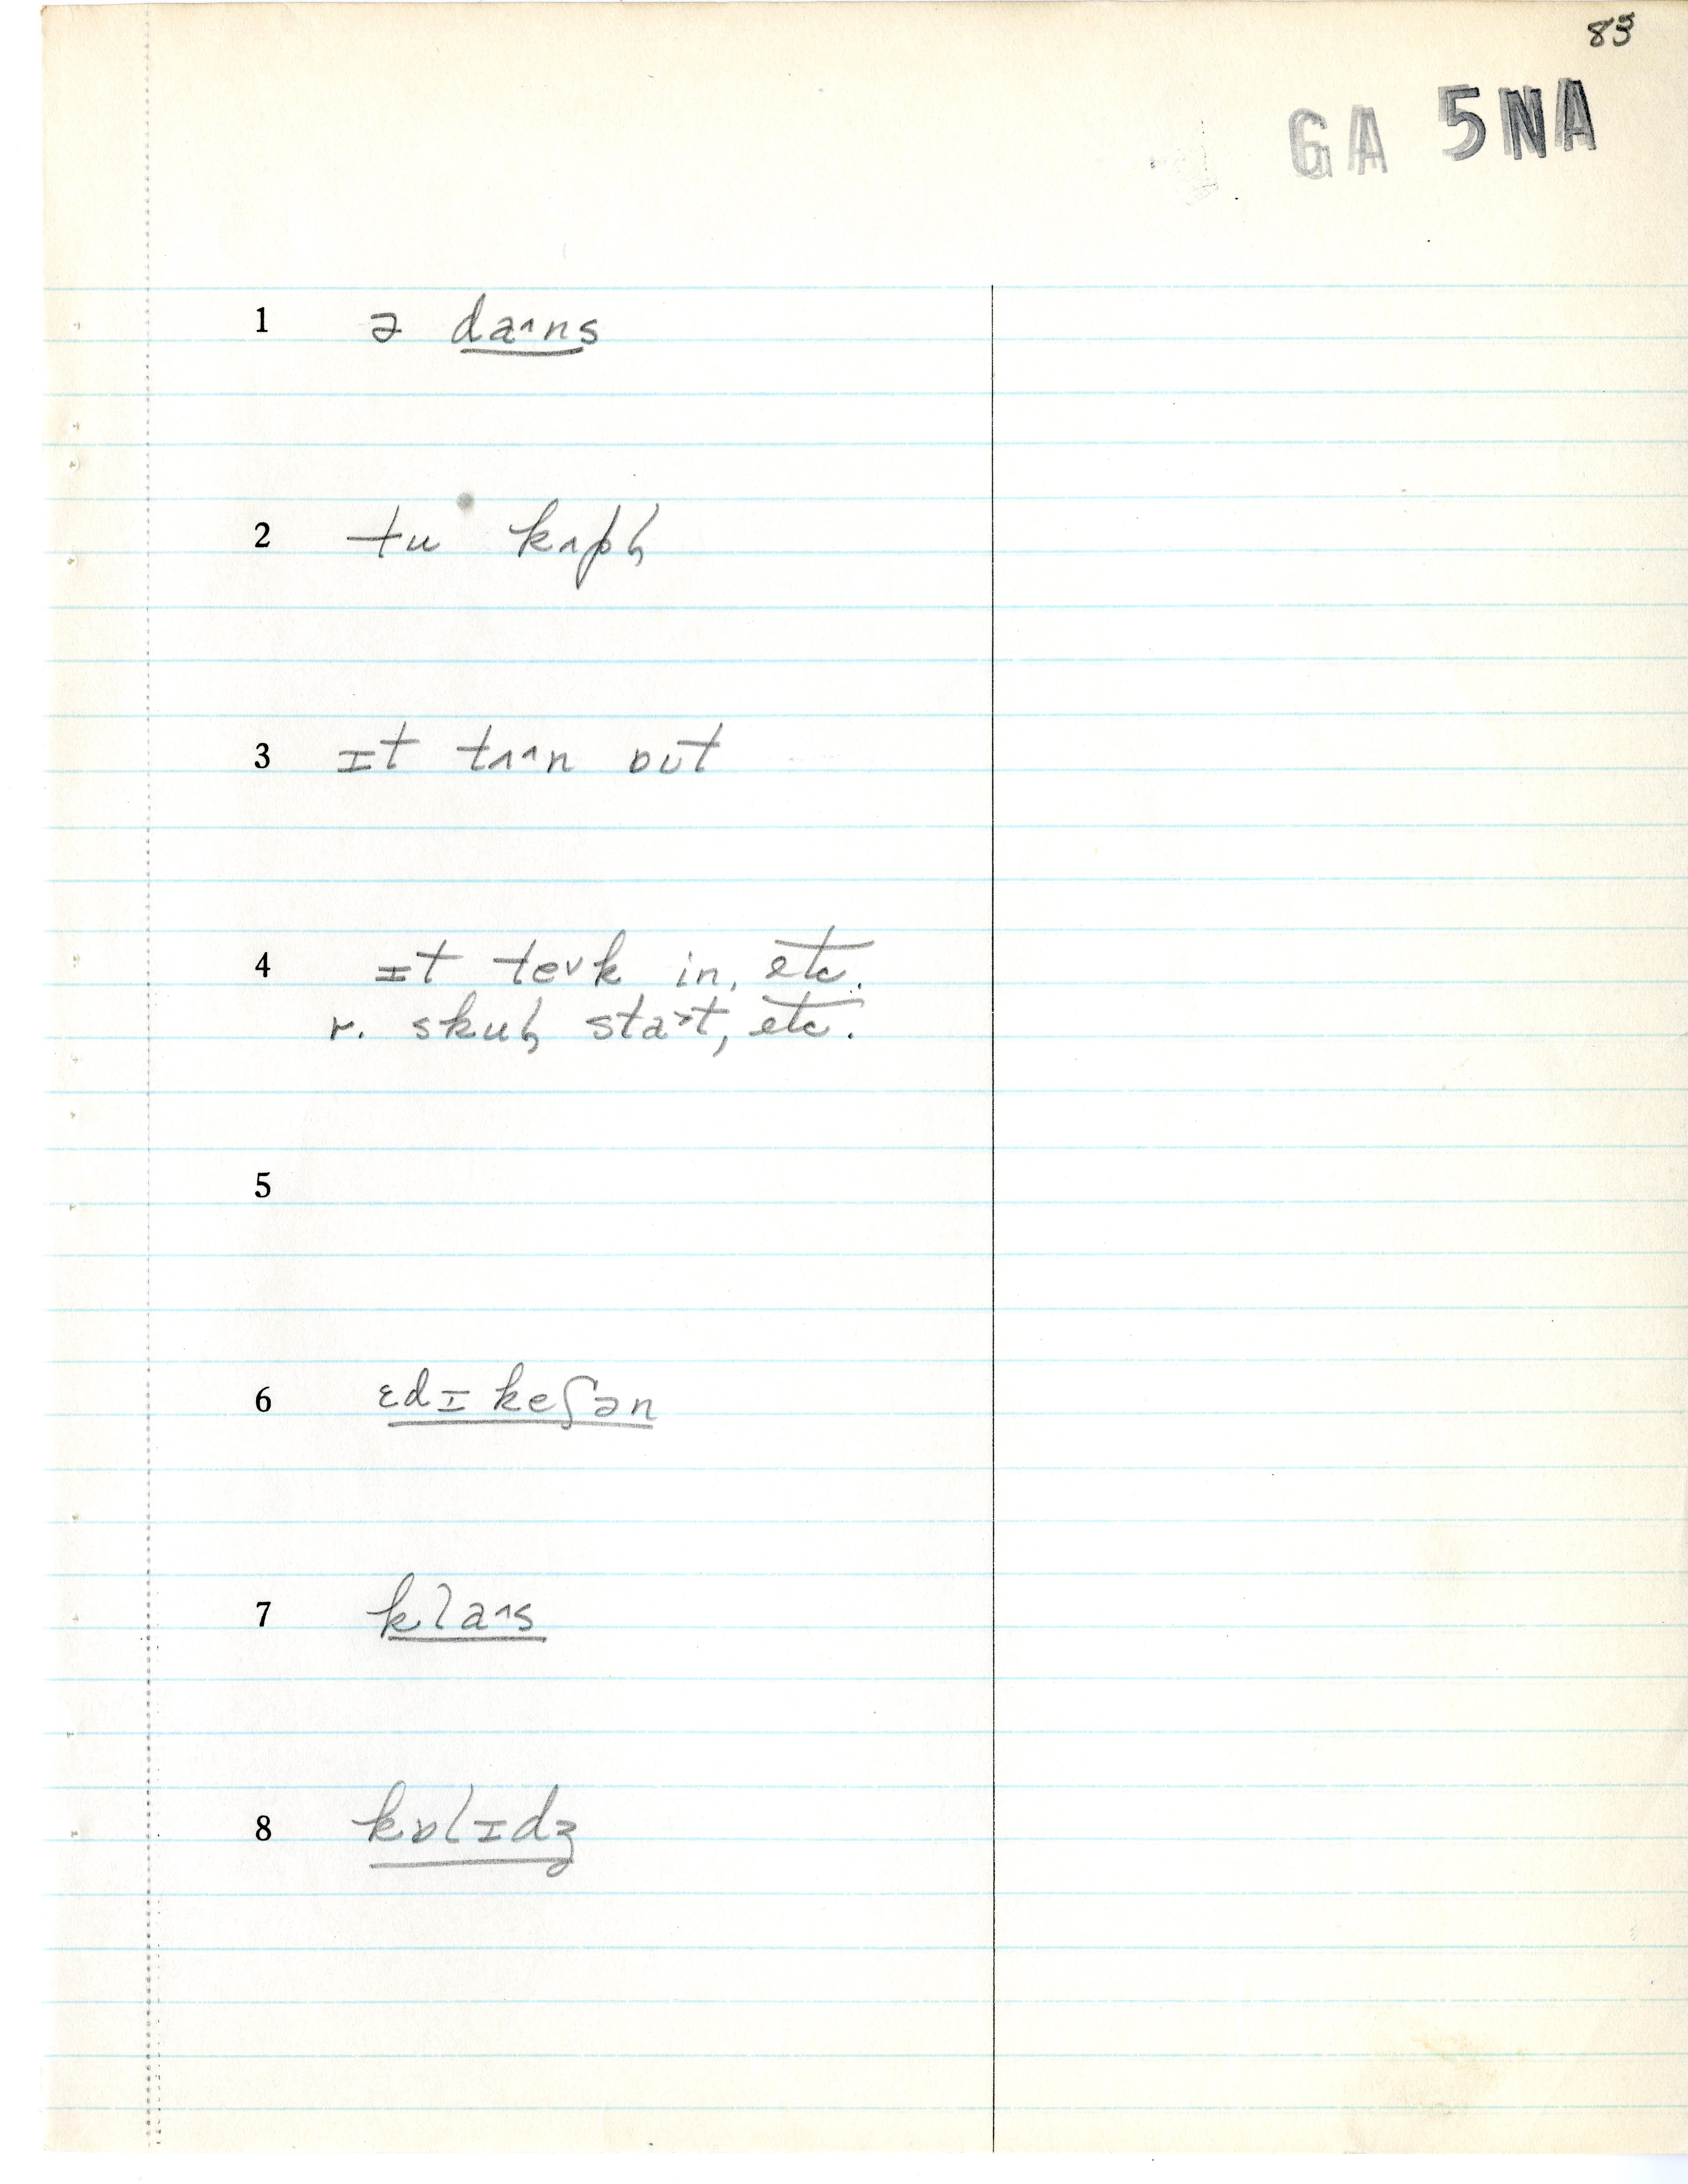 83
GA 5NA
1 ə da^ns
2 tu kʌpɫ
3 ɪt tʌ^n ɒut
4 ɪt teᵛk in, etc.
r. skuɫ sta˃t, etc.
5
6 ɛdɪkeʃən
7 kla^s
8 kɒlɪdʒ